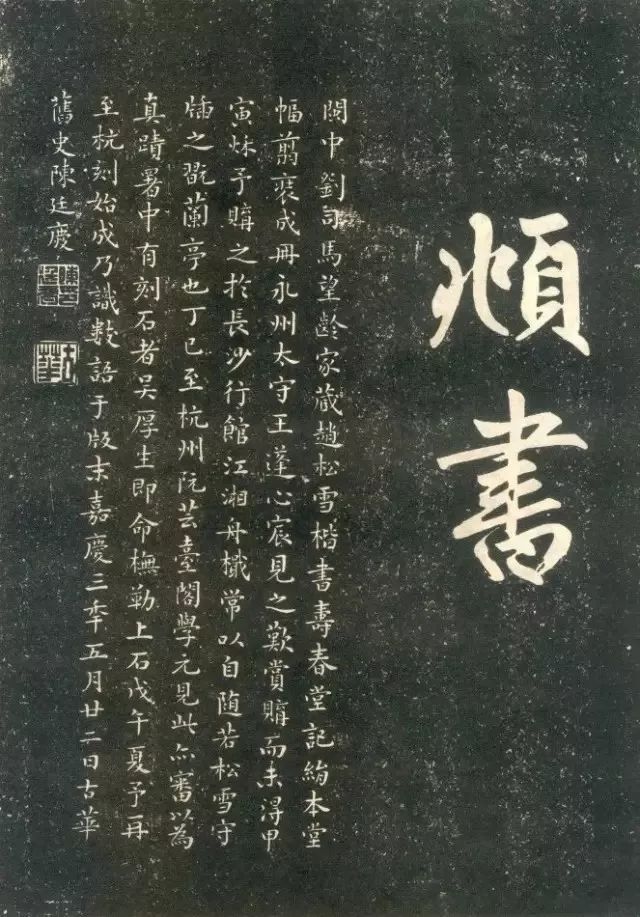 頫書
閩中劉司馬望齡家藏趙松雪楷書壽春堂記絹本堂
幅翦裒成冊永州太守王蓬心宸見之歎賞購而未得甲
寅秌予購之於長沙行館江湘舟檥常以自随若松雪守
之翫蘭亭也丁巳至杭州阮芸臺閣學元見此亦審以為
真蹟署中有刻石者吴厚生即命橅勒上石戊午夏予再
至杭刻始成乃識數語于版末嘉慶三年五月廿二日古華
舊史陳廷慶